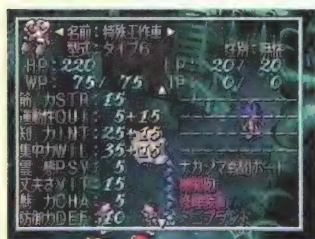 名前:特殊工作車
型式:タイプ6 性別:
HP:220 LP:20/20
WP: 75/ 75 JP: 0/ 0
筋 力STR:15
運動性QUI: 5+15
知 力INT:25+15
集中力WIL:35+15
霊 感PSY: 5
丈夫さVIT:15
魅 力CHA: 5
防御力DEF:10
ナカジマ